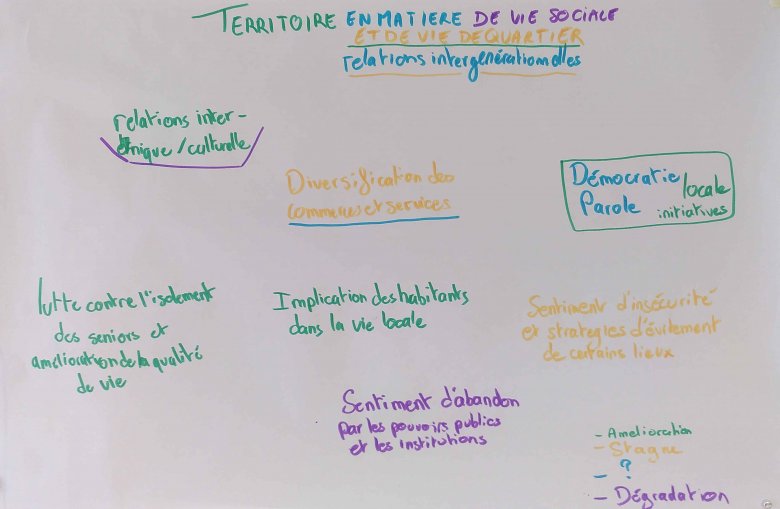 TERRITOIRE EN MATIERE DE VIE SOCIALE
ET DE VIE DE QUARTIER
relations intergénérationnelles
relations inter-
ethnique/culturelle
Diversification des
commerces et services
Démocratie locale
Parole initiatives
lutte contre l'isolement
des seniors et
amélioration de la qualité
de vie
Implication des habitants
dans la vie locale
Sentiment d'insécurité
et stratégies d'évitement
de certains lieux
Sentiment d'abandon
par les pouvoirs publics
et les institutions
- Amelioration
- Stagne
- ?
- Dégradation